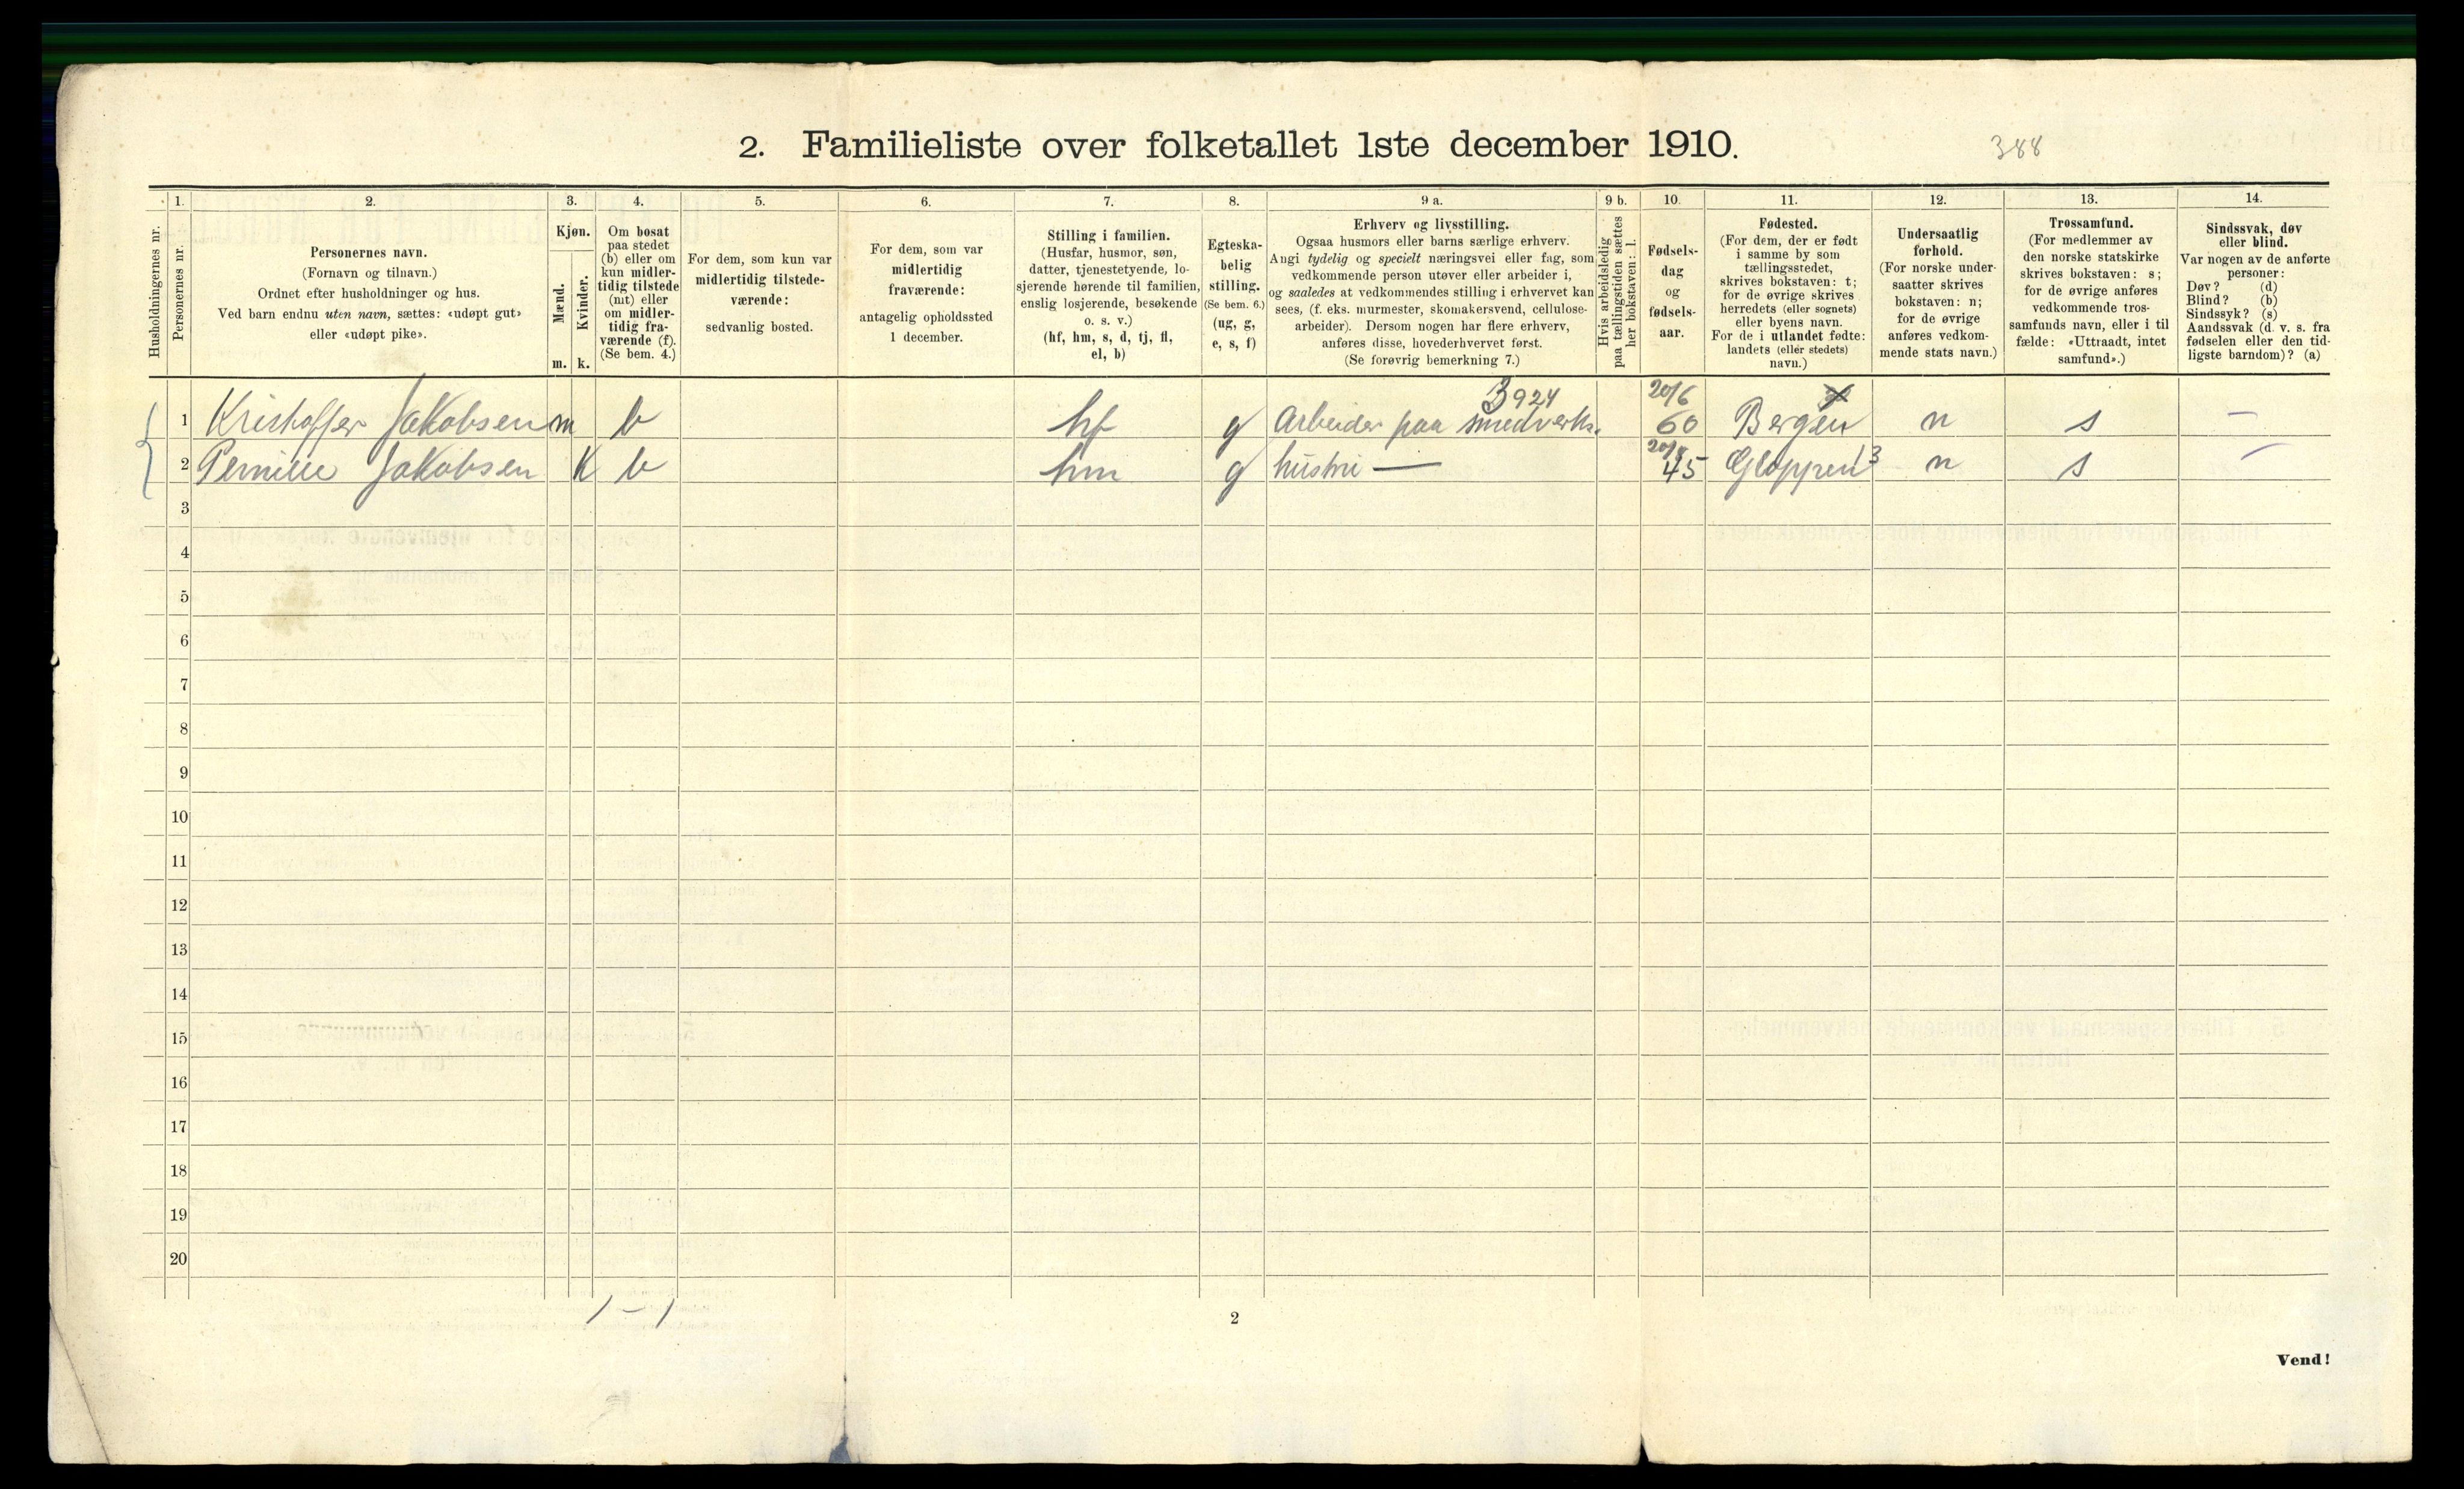 2. Familieliste over folketallet 1ste december 1910.
388
Husholdningernes nr.
1.
Personernes nr.
2.
Personernes navn.
(Fornavn og tilnavn.)
Ordnet efter husholdninger og hus.
Ved barn endnu uten navn, sættes: «udøpt gut»
eller «udøpt pike».
3.
Kjøn.
Mænd.
Kvinder.
m. k.
4.
Om bosat
paa stedet
(b) eller om
kun midler-
tidig tilstede
(mt) eller
om midler-
tidig fra-
værende (f).
(Se bem. 4.)
5.
For dem, som kun var
midlertidig tilstede-
værende:
sedvanlig bosted.
6.
For dem, som var
midlertidig
fraværende:
antagelig opholdssted
1 december.
7.
Stilling i familien.
(Husfar, husmor, søn,
datter, tjenestetyende, lo-
sjerende hørende til familien,
enslig losjerende, besøkende
o. s. v.)
(hf, hm, s, d, tj, fl,
el, b)
8.
Egteska-
belig
stilling.
(Se bem. 6.)
(ug, g,
e, s, f)
9 a.
Erhverv og livsstilling.
Ogsaa husmors eller barns særlige erhverv.
Angi tydelig og specielt næringsvei eller fag, som
vedkommende person utøver eller arbeider i,
og saaledes at vedkommendes stilling i erhvervet kan
sees, (f. eks. murmester, skomakersvend, cellulose-
arbeider). Dersom nogen har flere erhverv,
anføres disse, hovederhvervet først.
(Se forøvrig bemerkning 7.)
9 b.
Hvis arbeidsledig
paa tællingstiden sættes
her bokstaven: l.
10.
Fødsels-
dag
og
fødsels-
aar.
11.
Fødested.
(For dem, der er født
i samme by som
tællingsstedet,
skrives bokstaven: t;
for de øvrige skrives
herredets (eller sognets)
eller byens navn.
For de i utlandet fødte:
landets (eller stedets)
navn.)
12.
Undersaatlig
forhold.
(For norske under-
saatter skrives
bokstaven: n;
for de øvrige
anføres vedkom-
mende stats navn.)
13.
Trossamfund.
(For medlemmer av
den norske statskirke
skrives bokstaven: s;
for de øvrige anføres
vedkommende tros-
samfunds navn, eller i til
fælde: «Uttraadt, intet
samfund».)
14.
Sindssvak, døv
eller blind.
Var nogen av de anførte
personer:
Døv? (d)
Blind? (b)
Sindssyk? (s)
Aandssvak (d. v. s. fra
fødselen eller den tid-
ligste barndom)? (a)
3924 20/6
1 Kristoffer Jakobsen m b hf g Arbeider paa smedverks. 60 Bergen n s –
2 Pernille Jakobsen K b hm g hustru — 45 Gloppen 3 n s –
3
4
5
6
7
8
9
10
11
12
13
14
15
16
17
18
19
20
1 – 1
2
Vend!